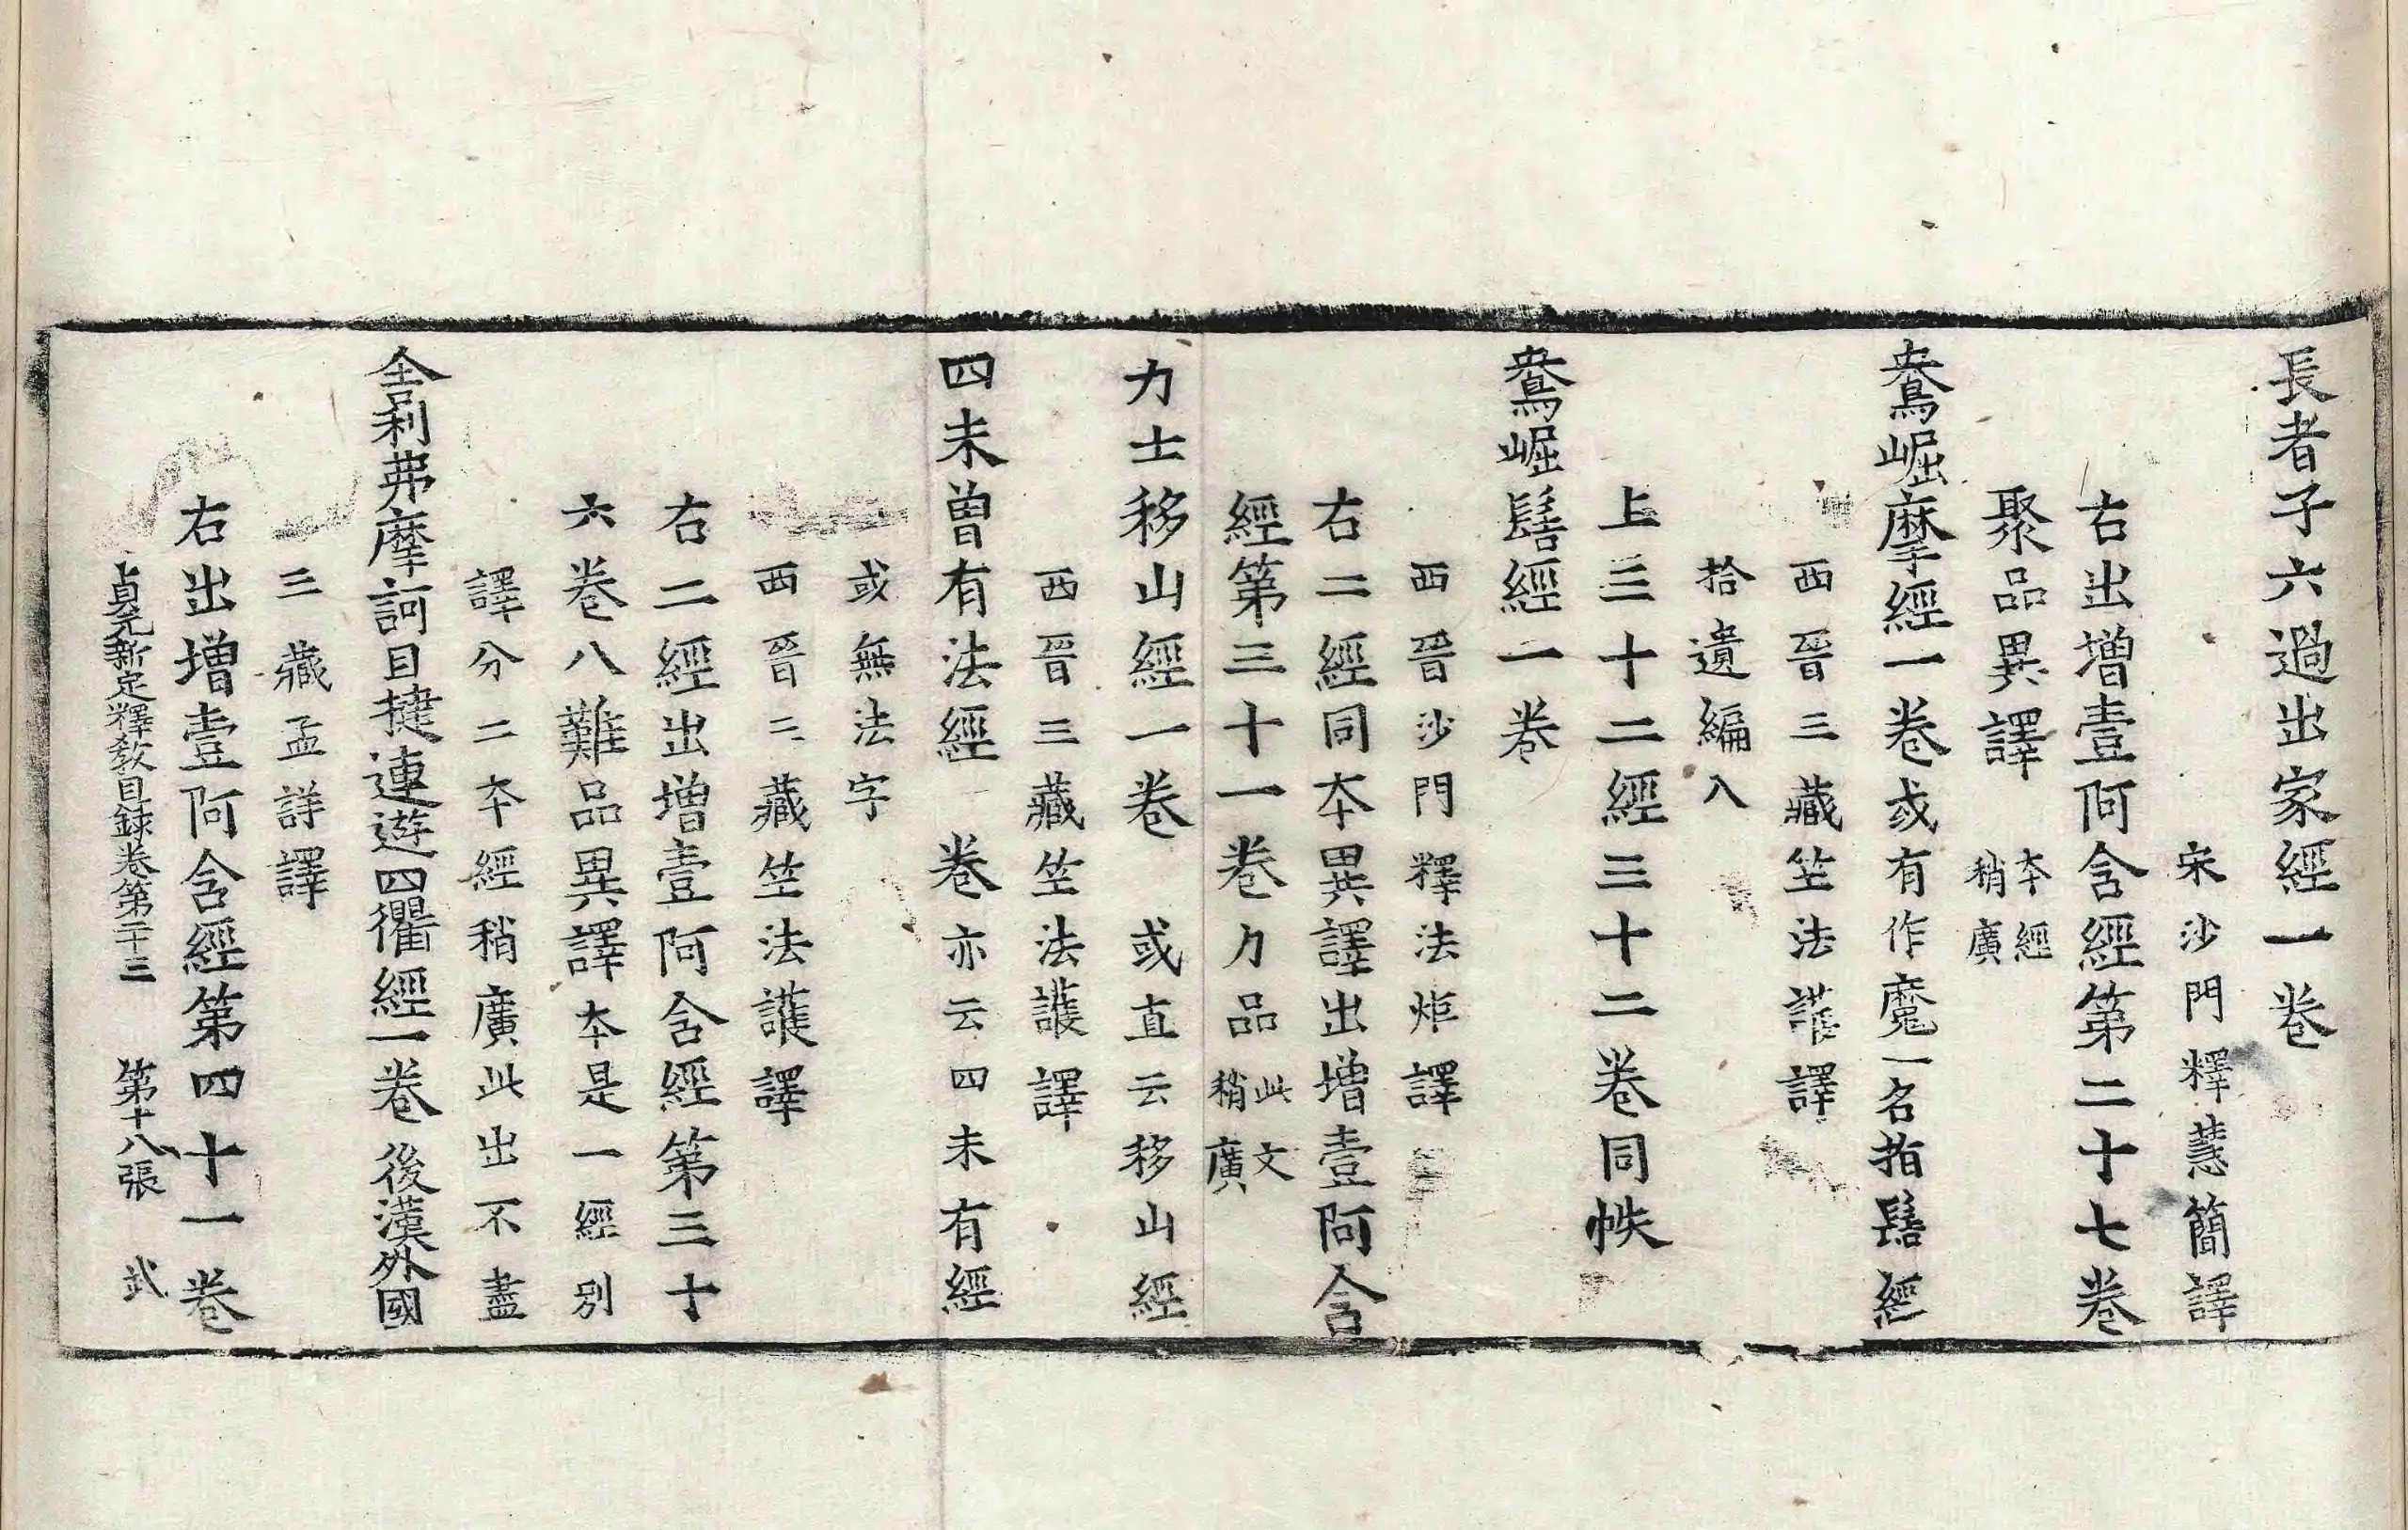 長者子六過出家經一卷
宋沙門釋慧簡譯
右出增壹阿含經第二十七卷
聚品異譯本經稍廣
鴦崛摩經一卷或有作魔一名指髻經
西晉三藏竺法護譯
拾遺編入
上三十二經三十二卷同帙
鴦崛髻經一卷
西晉沙門釋法炬譯
右二經同本異譯出增壹阿含
經第三十一卷力品此文稍廣
力士移山經一卷 或直云移山經
西晉三藏竺法護譯
四未曾有法經一卷亦云四未有經
或無法字
西晉三藏竺法護譯
右二經出增壹阿含經第三十
六卷八難品異譯本是一經別
譯分二本經稍廣此出不盡
舍利弗摩訶目揵連遊四衢經一卷 後漢外國
三藏孟詳譯
右出增壹阿含經第四十一卷
貞元新定釋教目録卷第二十三 第十八張 武